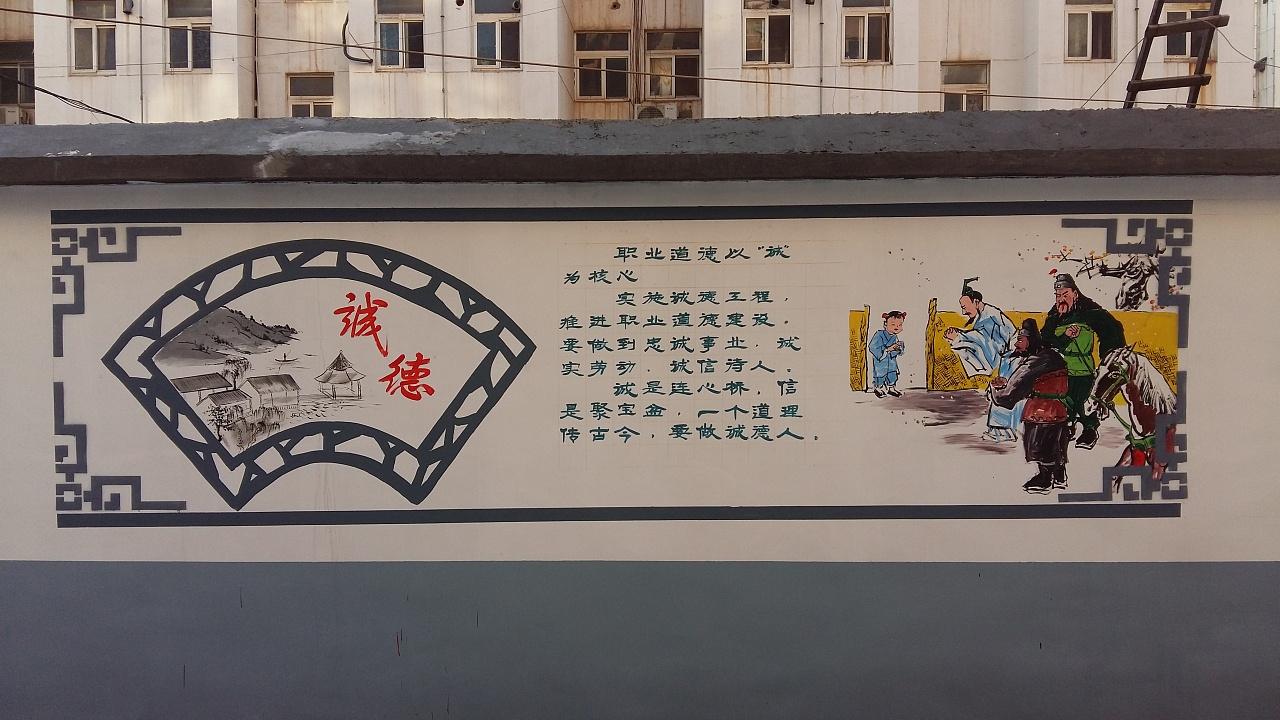 誠
德
职业道德以“诚”
为核心
实施诚德工程，
推进职业道德建设。
要做到忠诚事业，诚
实劳动，诚信待人。
诚是连心桥，信
是聚宝盆，一个道理
传古今，要做诚德人。